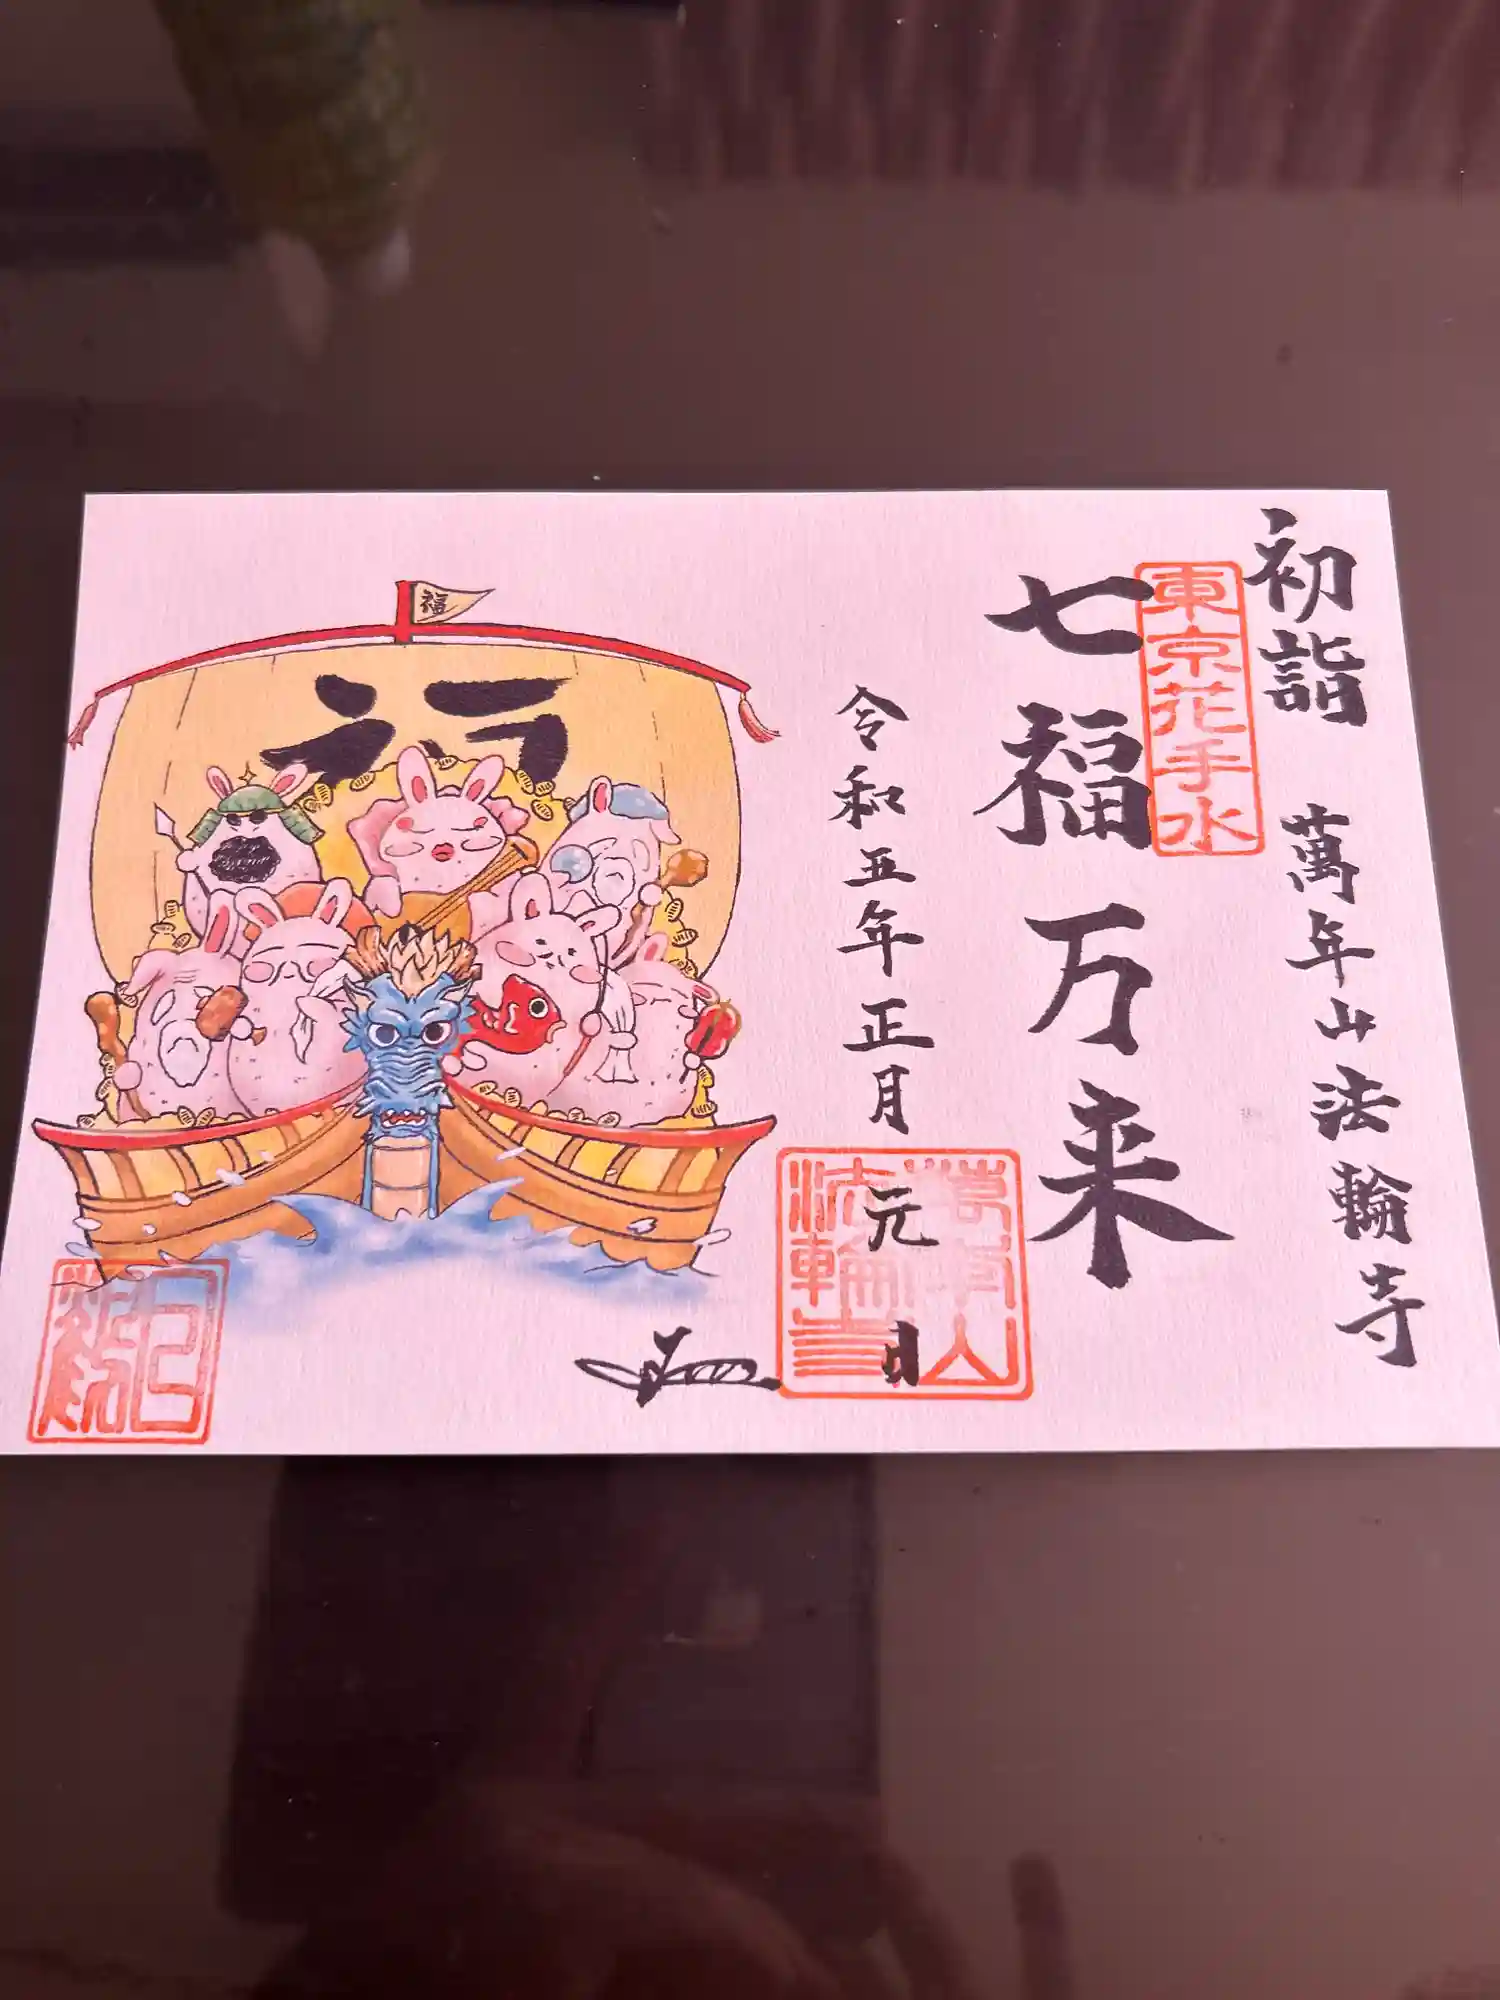 初詣 萬年山法輪寺
東京花手水
七福万来
令和五年正月元日
萬年山法輪寺
福
福